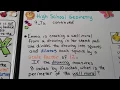 High School Geometry
Emma is creating a wall mural
from a drawing in her sketch pad.
She divides the drawing into squares
and dilates each square by a
scale factor of
The drawing measures
inches by 10 inches. What is the
perimeter of the wall mural?